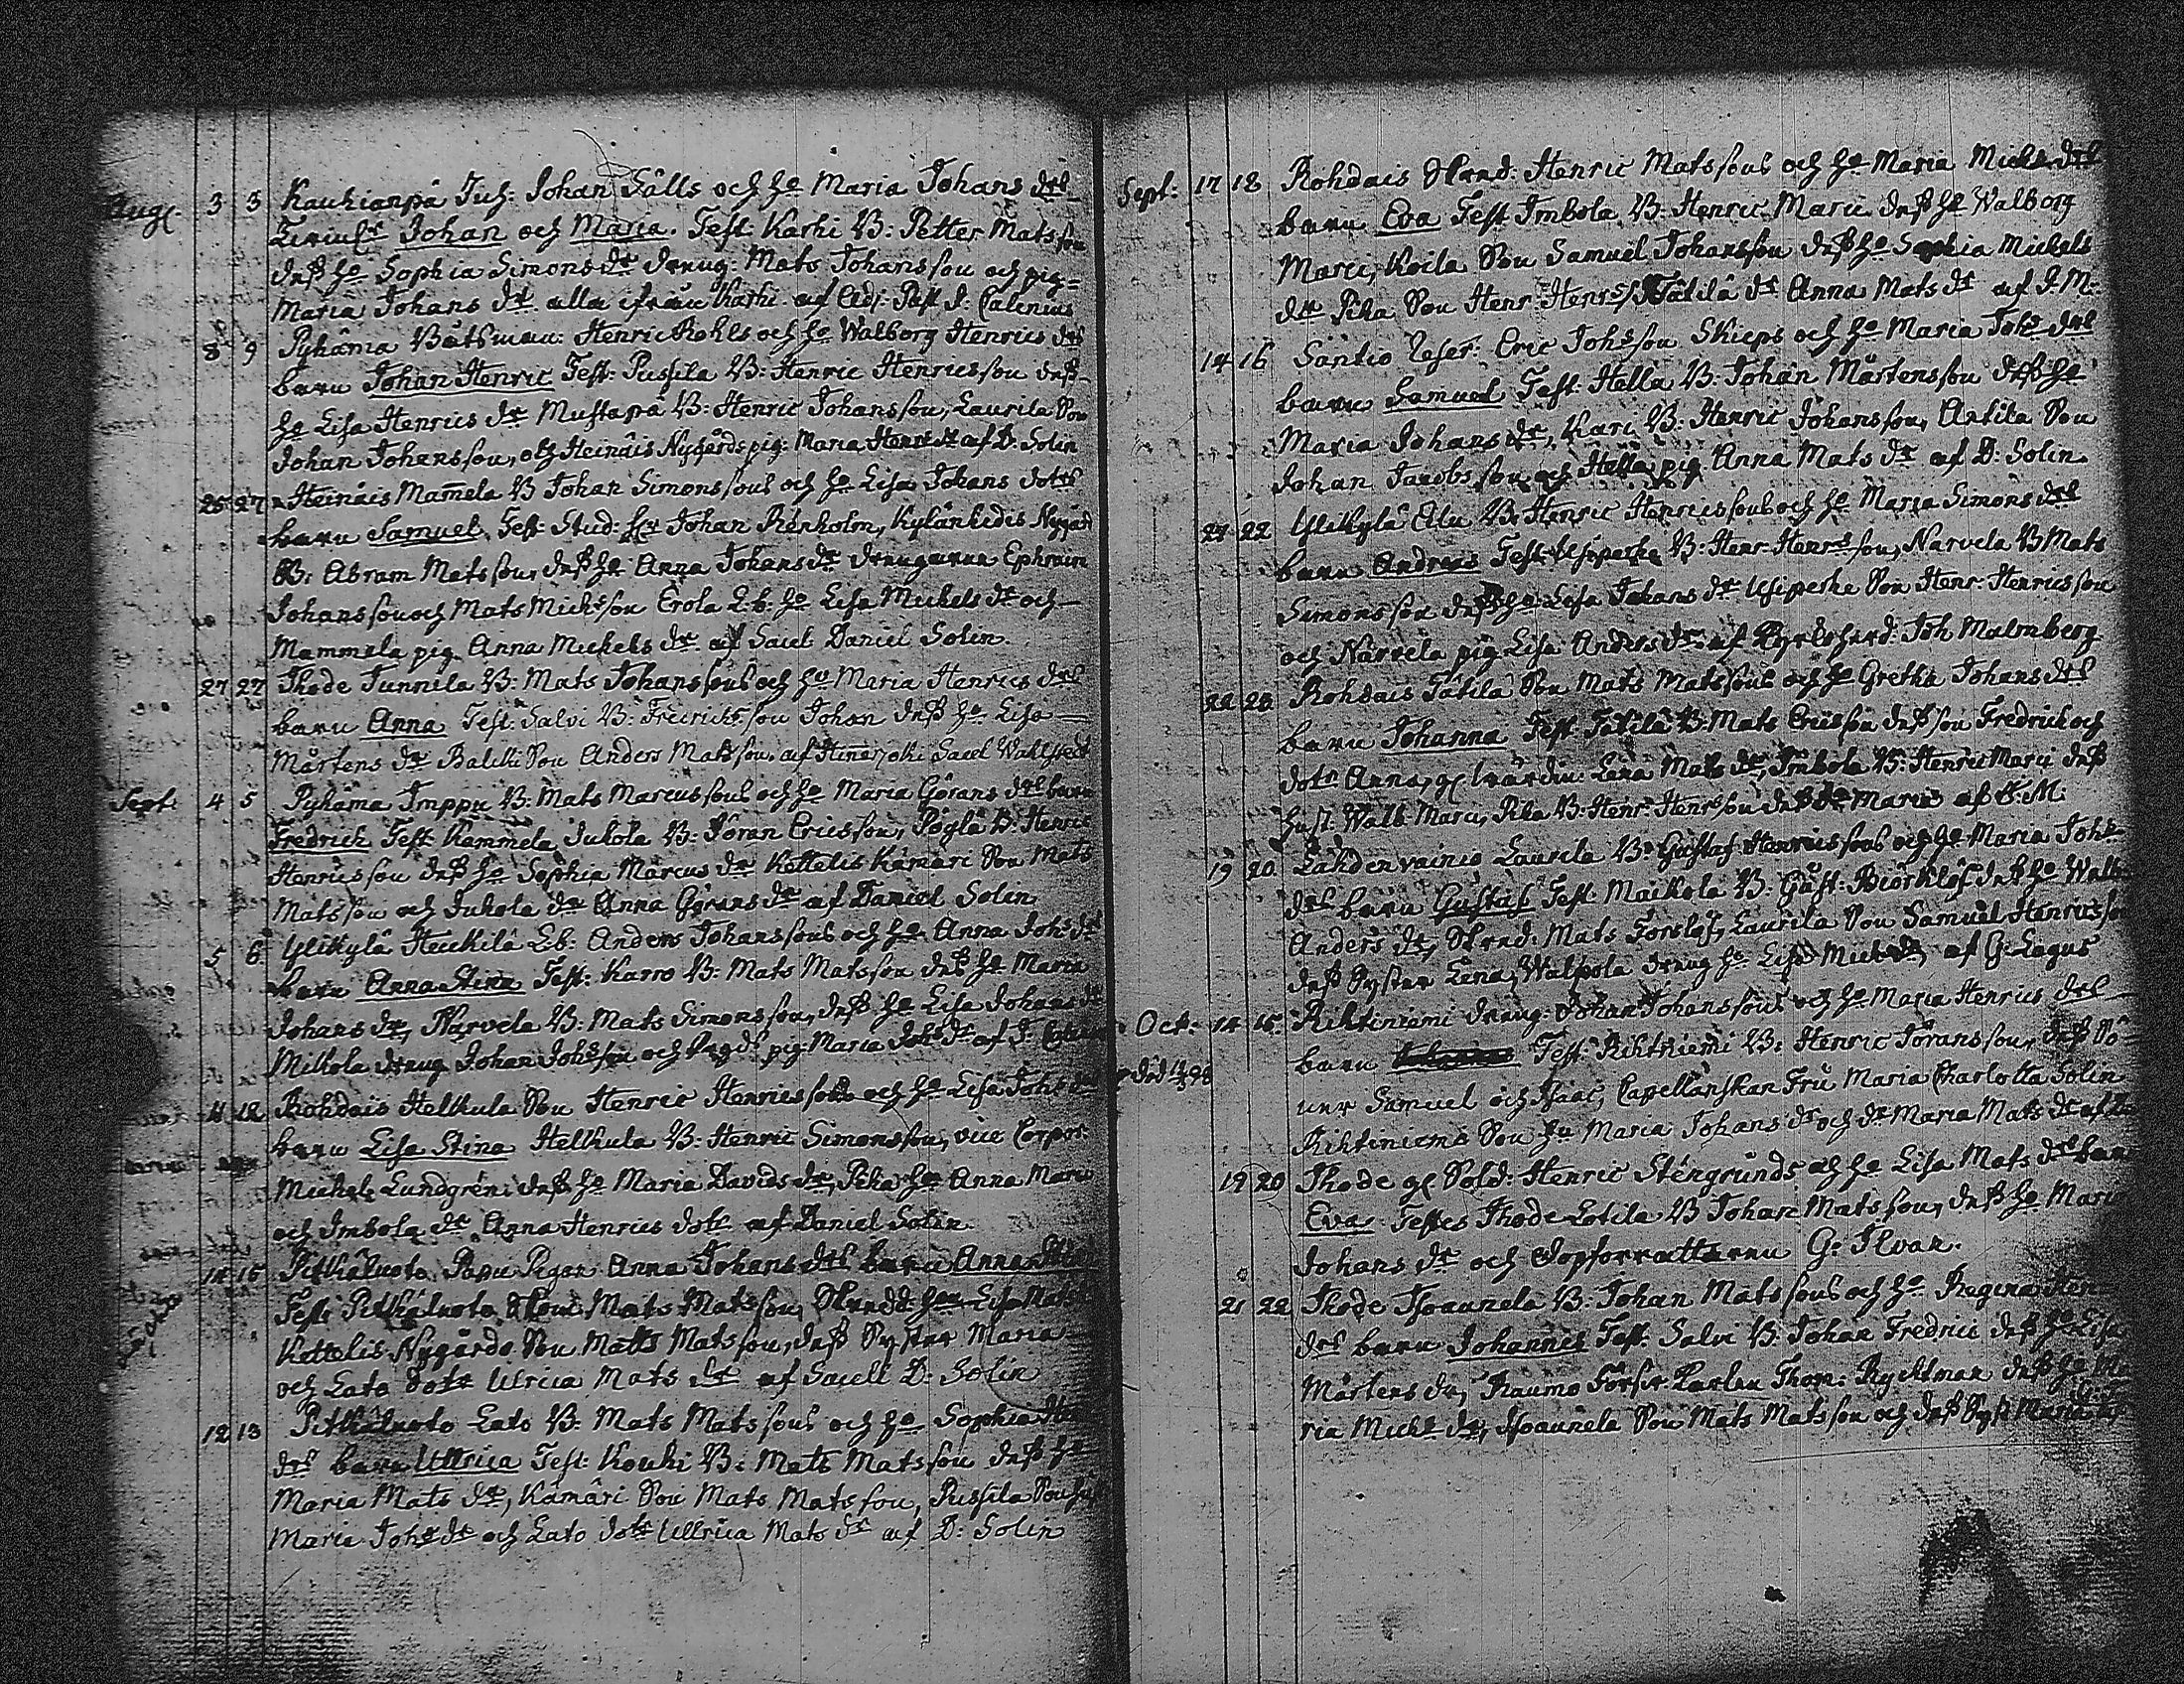 Aug. 3 3 Kauhianpä Inh: Johan Fälls och ho Maria Johans drs
Johan och Maria. Test: Karhi B: Petter Matsson
dess ho Sophia Simons dr dräng: Mats Johansson och pig=
Maria Johans dr alla ifrån Karhi af Adj: Past J: Calenius
8 9 Pyhäma Båtsman: Henric Rohls och ho Walborg Henrics drs
barn Johan Henric Test: Pussila B: Henric Henricsson dess
ho Lisa Henrics dr Mustapä B: Henric Johansson, Laurila Son
Johan Johansson, och Heinäis Nygårds pig: Maria Henrs dr af D: Solin
25 27 Heinäis Mamela B Johan Simonssons och ho Lisa Johans dotrs
barn Samuel. Test: Stud: Johan Renholm, Kylänkedis Nygård
B: Abram Matsson, dess ho Anna Johans dr drengarna Ephraim
Johansson och Mats Michsson Erola Lb: ho Lisa Michels dr och
Mammela pig Anna Michels dr af Sacel: Daniel Solin.
27 27 Ihode Junnila B: Mats Johanssons och ho Maria Henrics drs
barn Anna Test: Salvi B: Freirichsson Johan dess ho Lisa
Mårtens dr Son Anders Matsson af Hinerjoki Sacel
Sept: 4 5 Pyhäma Imppu B: Mats Marcussons och ho Maria Görans drs barn
Fredrich Test: Kammela Jukola B: Jöran Ericsson, B: Henric
Henricsson dess ho Sophia Marcus dr Kettelis Kämäri Son Mats
Matsson och Jukola dr Anna Görans dr af Daniel Solin
5 6 Ylikylä Heickilä Lb: Anders Johanssons och ho Anna Johs drs
barn Anna Stina Test: Karro B: Mats Matsson dess ho Maria
Johans dr, Narvela B: Mats Simonsson, dess ho Lisa Johans dr
Mikola dreng Johan Johsson och pig: Maria Johs dr af J:
11 12 Rohdais Helkula Son Henric Henricssons och ho Lisa Johs drs
barn Lisa Stina Helkula B: Henric Simonsson, vice Corpor:
Michel Lundgren: dess ho Maria Davids dr, Pika ho Anna Marci
och Imbola dr Anna Henrics dotr af Daniel Solin
14 15 Pitkäluoto Papu Pigan Anna Johans drs barn Anna Stina
Test: Pitkäluoto Mats Matsson, ho Lisa Mats
Kettelis Nygårds Son Matts Matsson, dess Syster Maria
och Lato dotr Ulrica Mats dr af Sacell D: Solin
12 13 Pitkäluoto Lato B: Mats Matssons och ho Sophia
drs barn Ullrica Test: Kouki B: Mats Matsson dess ho
Maria Mats dr, Kämäri Son Mats Matsson, Pussila
Maria Johs dr och Lato dotr Ullrica Mats dr af D: Solin
Sept: 17 18 Rohdais Henric Matssons och ho Maria Michls drs
barn Eva Test Imbola B: Henric Marci dess ho Walborg
Marci, Koila Son Samuel Johansson dess ho Sophia Michels
dr Pika Son Henr: Henrs Tätilä dr Anna Mats dr af J. M:
14 16 Santio Eric Johsson Skieps och ho Maria Johs drs
barn Samuel Test: Hella B: Johan Mårtensson dess ho
Maria Johans dr, Kari B: Henric Johansson, Antila Son
Johan Jacobsson och Hella pig Anna Mats dr af D: Solin
21 22 Ylikylä B: Henric Henricssons och ho Maria Simons drs
barn Andreas Test: B: Henr: Henrsson, Narvela B Mats
Simonsson dess ho Lisa Johans dr Son Henr: Henricsson
och Narvela pig Lisa Anders dr af Joh Malmberg
22 23 Rohdais Tätilä Son Mats Matssons och ho Gretha Johans drs
barn Johanna Test: Tätilä B: Mats Ericsson dess son Fredrich och
dotr Anna, Lena Mats dr, Imbola B: Henric Marci dess
hust: Walb: Marci, Pika B: Henr: Henrsson dess ho Maria af J: M:
19 20 Lahdenvainio Laurila B: Gustaf Henricssons och ho Maria Johs
drs barn Gustaf Test: Maikola B: Gust: Biörklöf dess ho Walb:
Anders dr, Mats Forslöf, Laurila Son Samuel Henricsson
dess Syster Lena, Walpola dreng ho Lisa Michls dr, af G: Lagus
Oct: 14 15 Rihtiniemi dreng: Johan Johanssons och ho Maria Henrics drs
död barn Test: Rihtniemi B: Henric Jöransson, dess Sö=
ner Samuel och Isaac, Capellanskan Fru Maria Charlotta Solin
Rihtiniemi Son hu Maria Johans dr och dr Maria Mats dr af
19 20 Ihode Sold: Henric Stengrunds och ho Lisa Mats drs barn
Eva Testes Ihode Lotila B Johan Matsson, dess ho Maria
Johans dr och Dopförrättaren G: Ilvan.
21 22 Ihode Isoannela B: Johan Matssons och ho Regina
drs barn Johannes Test: Salvi B: Johan Fredric dess ho Lisa
Mårtens dr, Raumo Thom: Rycktman dess ho Ma
ria Michl dr, Isoannela Son Mats Matsson och dess Syst Maria